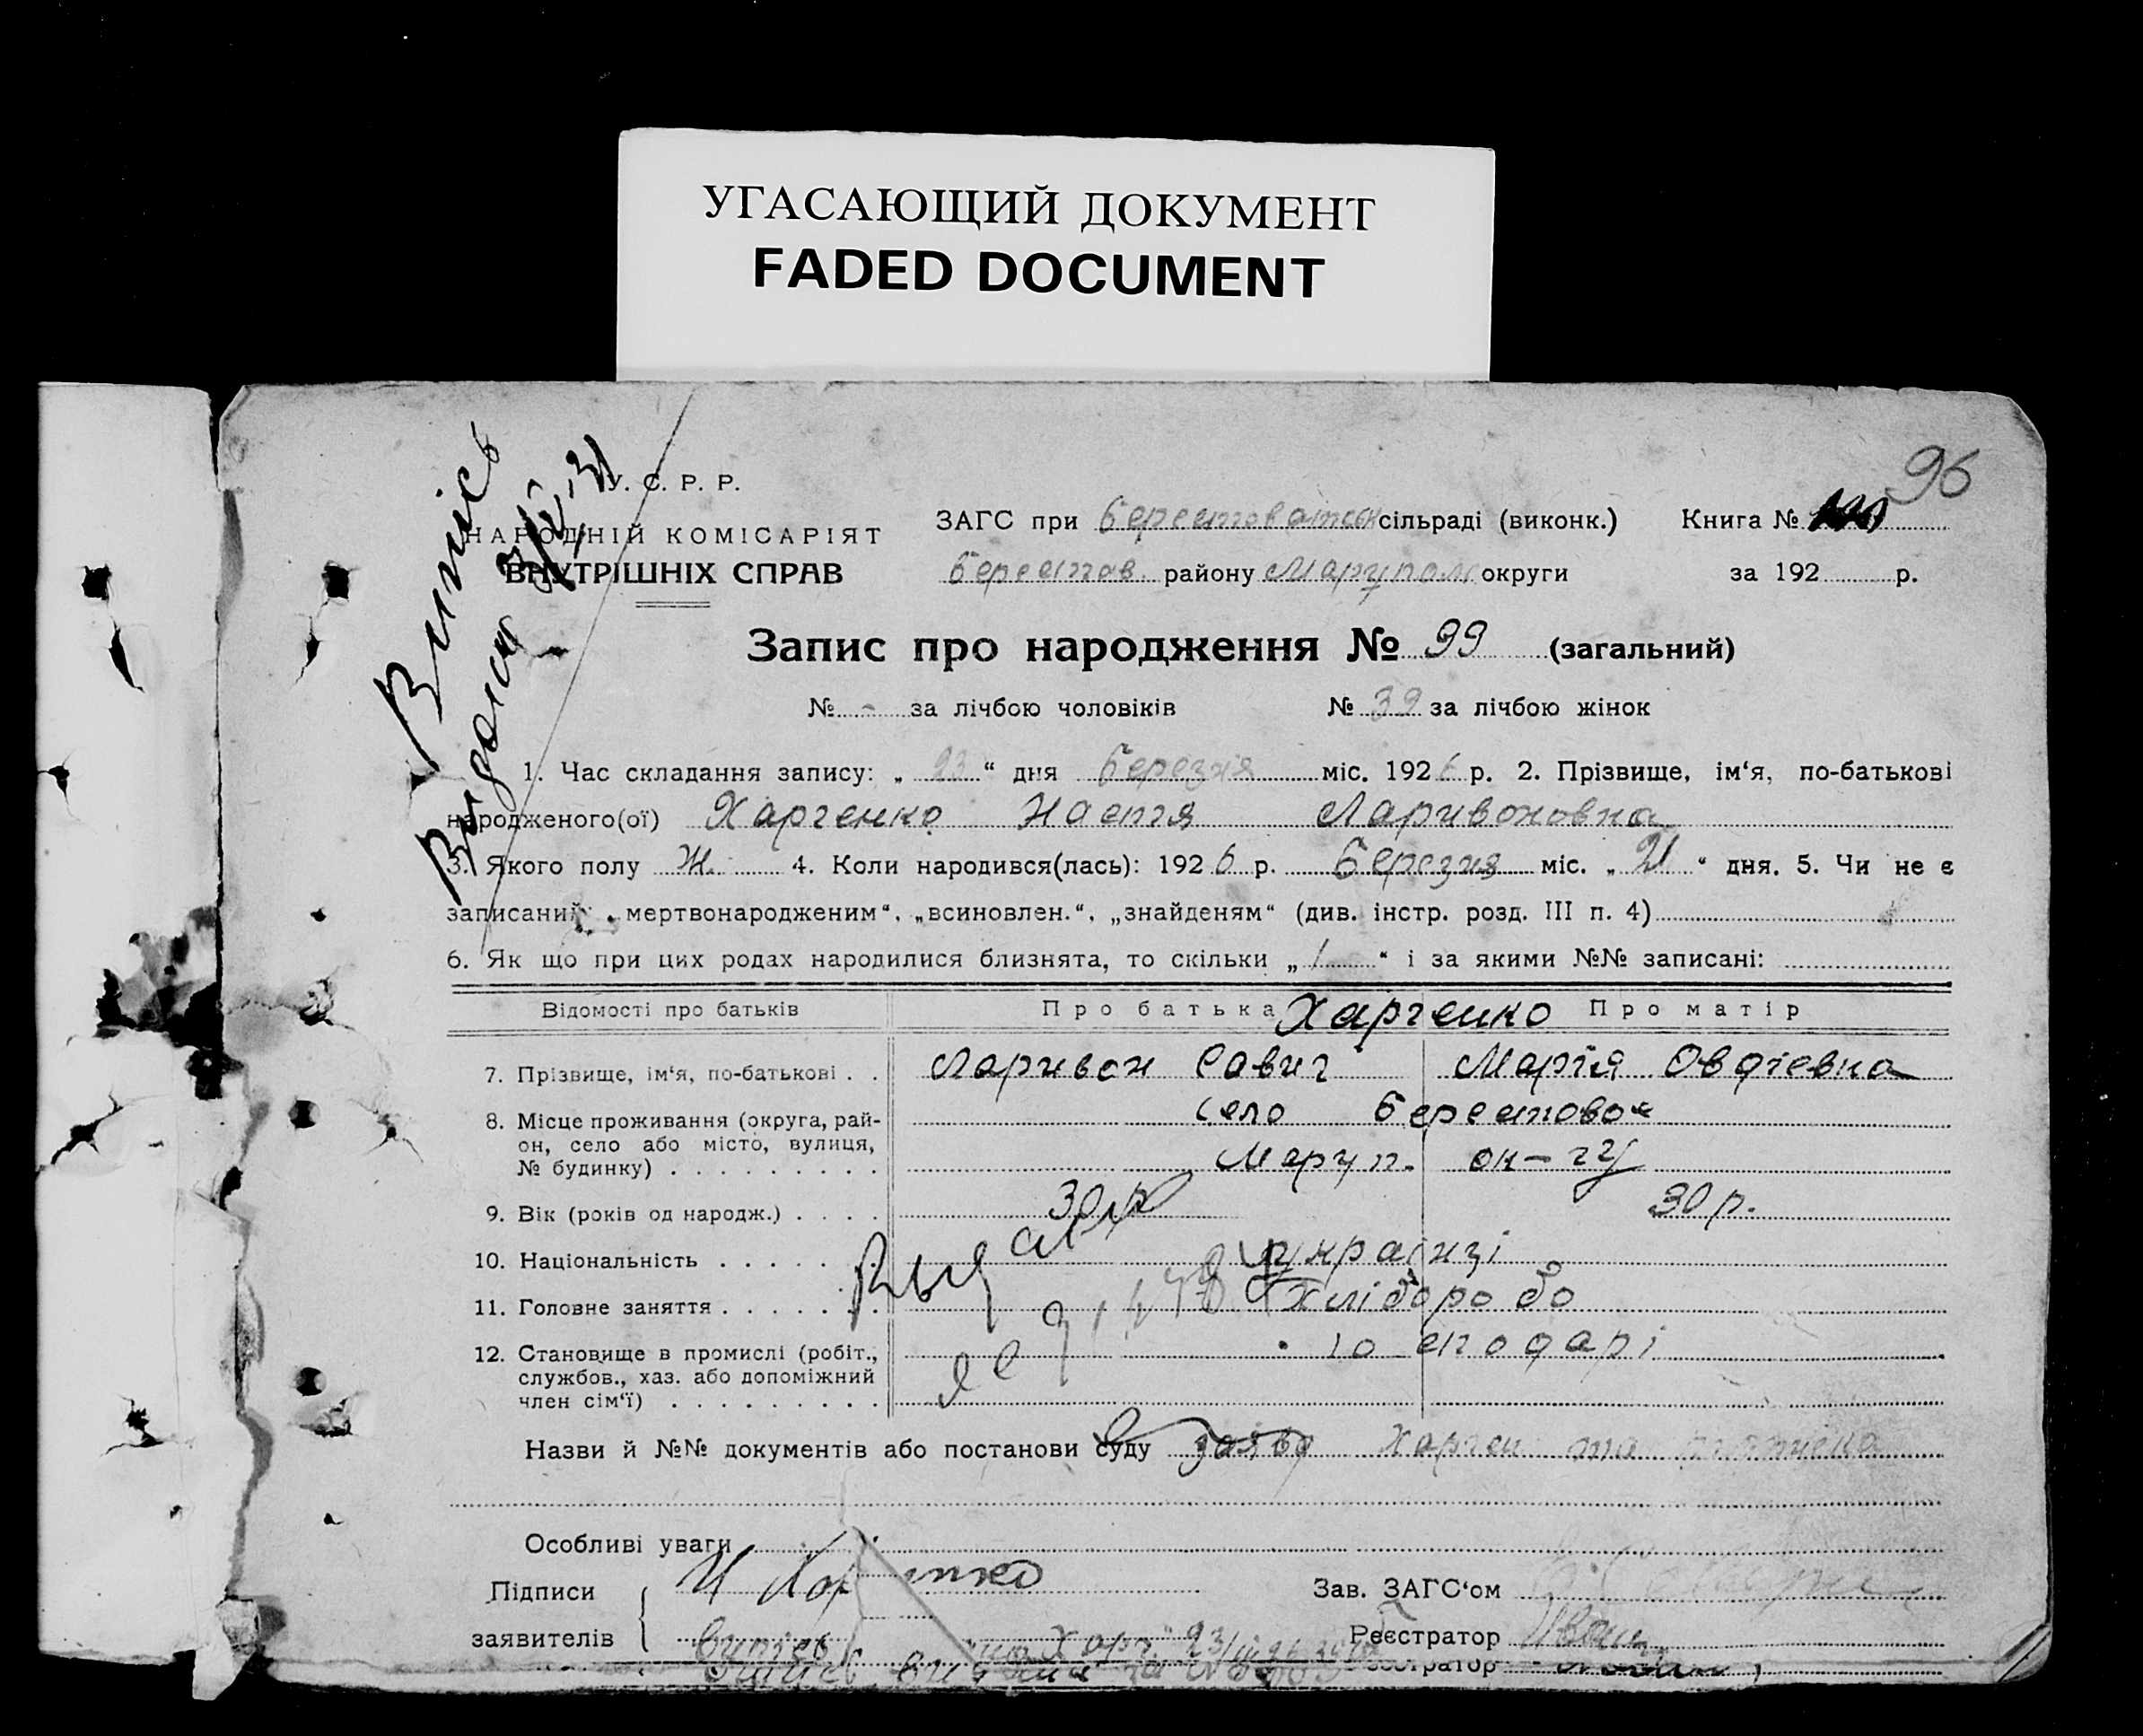 УГАСАЮЩИЙ ДОКУМЕНТ
FADED DOCUMENT
96
Випись
Видана
У. С. Р. Р.
НАРОДНІЙ КОМІСАРІЯТ
ВНУТРІШНІХ СПРАВ
ЗАГС при Берестоватськ сільраді (виконк.) Книга №
Берестов. району Маруполь округи за 192 р.
Запис про народження № 99 (загальний)
№ - за лічбою чоловіків № 39 за лічбою жінок
1. Час складання запису: „ 23 “ дня Березня міс. 1926 р. 2. Прізвище, ім‘я, по-батькові
народженого(ої) Харченко Настя Ларивоновна
3. Якого полу Ж. 4. Коли народився(лась): 1926 р. Березня міс. „ 21 “ дня. 5. Чи не є
записаний „мертвонародженим“, „всиновлен.“, „знайденям“ (див. інстр. розд. III п. 4)
6. Як що при цих родах народилися близнята, то скільки „ / “ і за якими №№ записані:
Відомості про батьків Про батька Харченко Про матір
7. Прізвище, ім‘я, по-батькові . . Ларивон Савич Марія Овдіевна
8. Місце проживання (округа, рай- село Берестовое
он, село або місто, вулиця, Маруп. ок-гу
№ будинку) . . . . . . . . .
9. Вік (років од народж.) . . . . 30 р 30 р.
10. Національність . . . . . . українці
11. Головне заняття . . . . . . . хлібороб
12. Становище в промислі (робіт., господарі
службов., хаз. або допоміжний
член сім‘ї) . . . . . . . . .
Назви й №№ документів або постанови суду заява Харчен та
Особливі уваги
Підписи
заявителів
Зав. ЗАГС‘ом
Реєстратор
випись